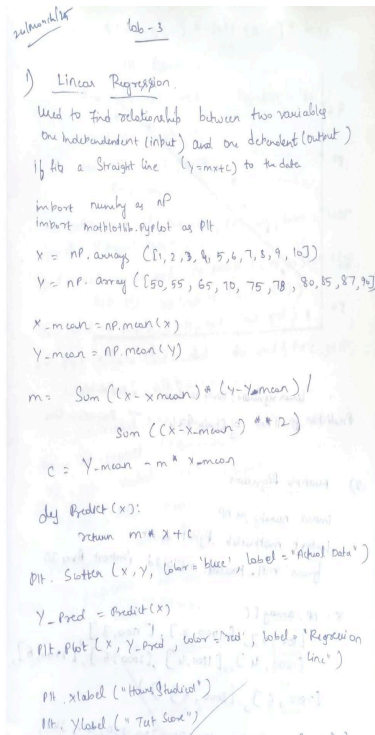 26/march/25
lab-3
1) Linear Regression.
Used to find relationship between two variables
One Independendent (input) and one dependent (output)
if fits a Straight line (y=mx+c) to the data
import numpy as np
import mathlotlib.pyplot as plt
X = np.arrays ([1, 2, 3, 4, 5, 6, 7, 8, 9, 10])
Y = np.array ([50, 55, 65, 70, 75, 78, 80, 85, 87, 90]
X-mean = np.mean (x)
Y-mean = np.mean (Y)
m = Sum ((x - x mean) * (y - Y-mean) /
Sum ((x - x-mean) ** 2)
C = Y-mean - m * x-mean
def Predict (x):
return m * x + c
plt. Scatter (x, y, color = 'blue', label = "Actual Data")
Y_Pred = Predict (x)
plt. plot (x, y_Pred, color = 'red', label = "Regression
line")
plt. xlabel ("Hours Studied")
plt. Ylabel ("Test Score")